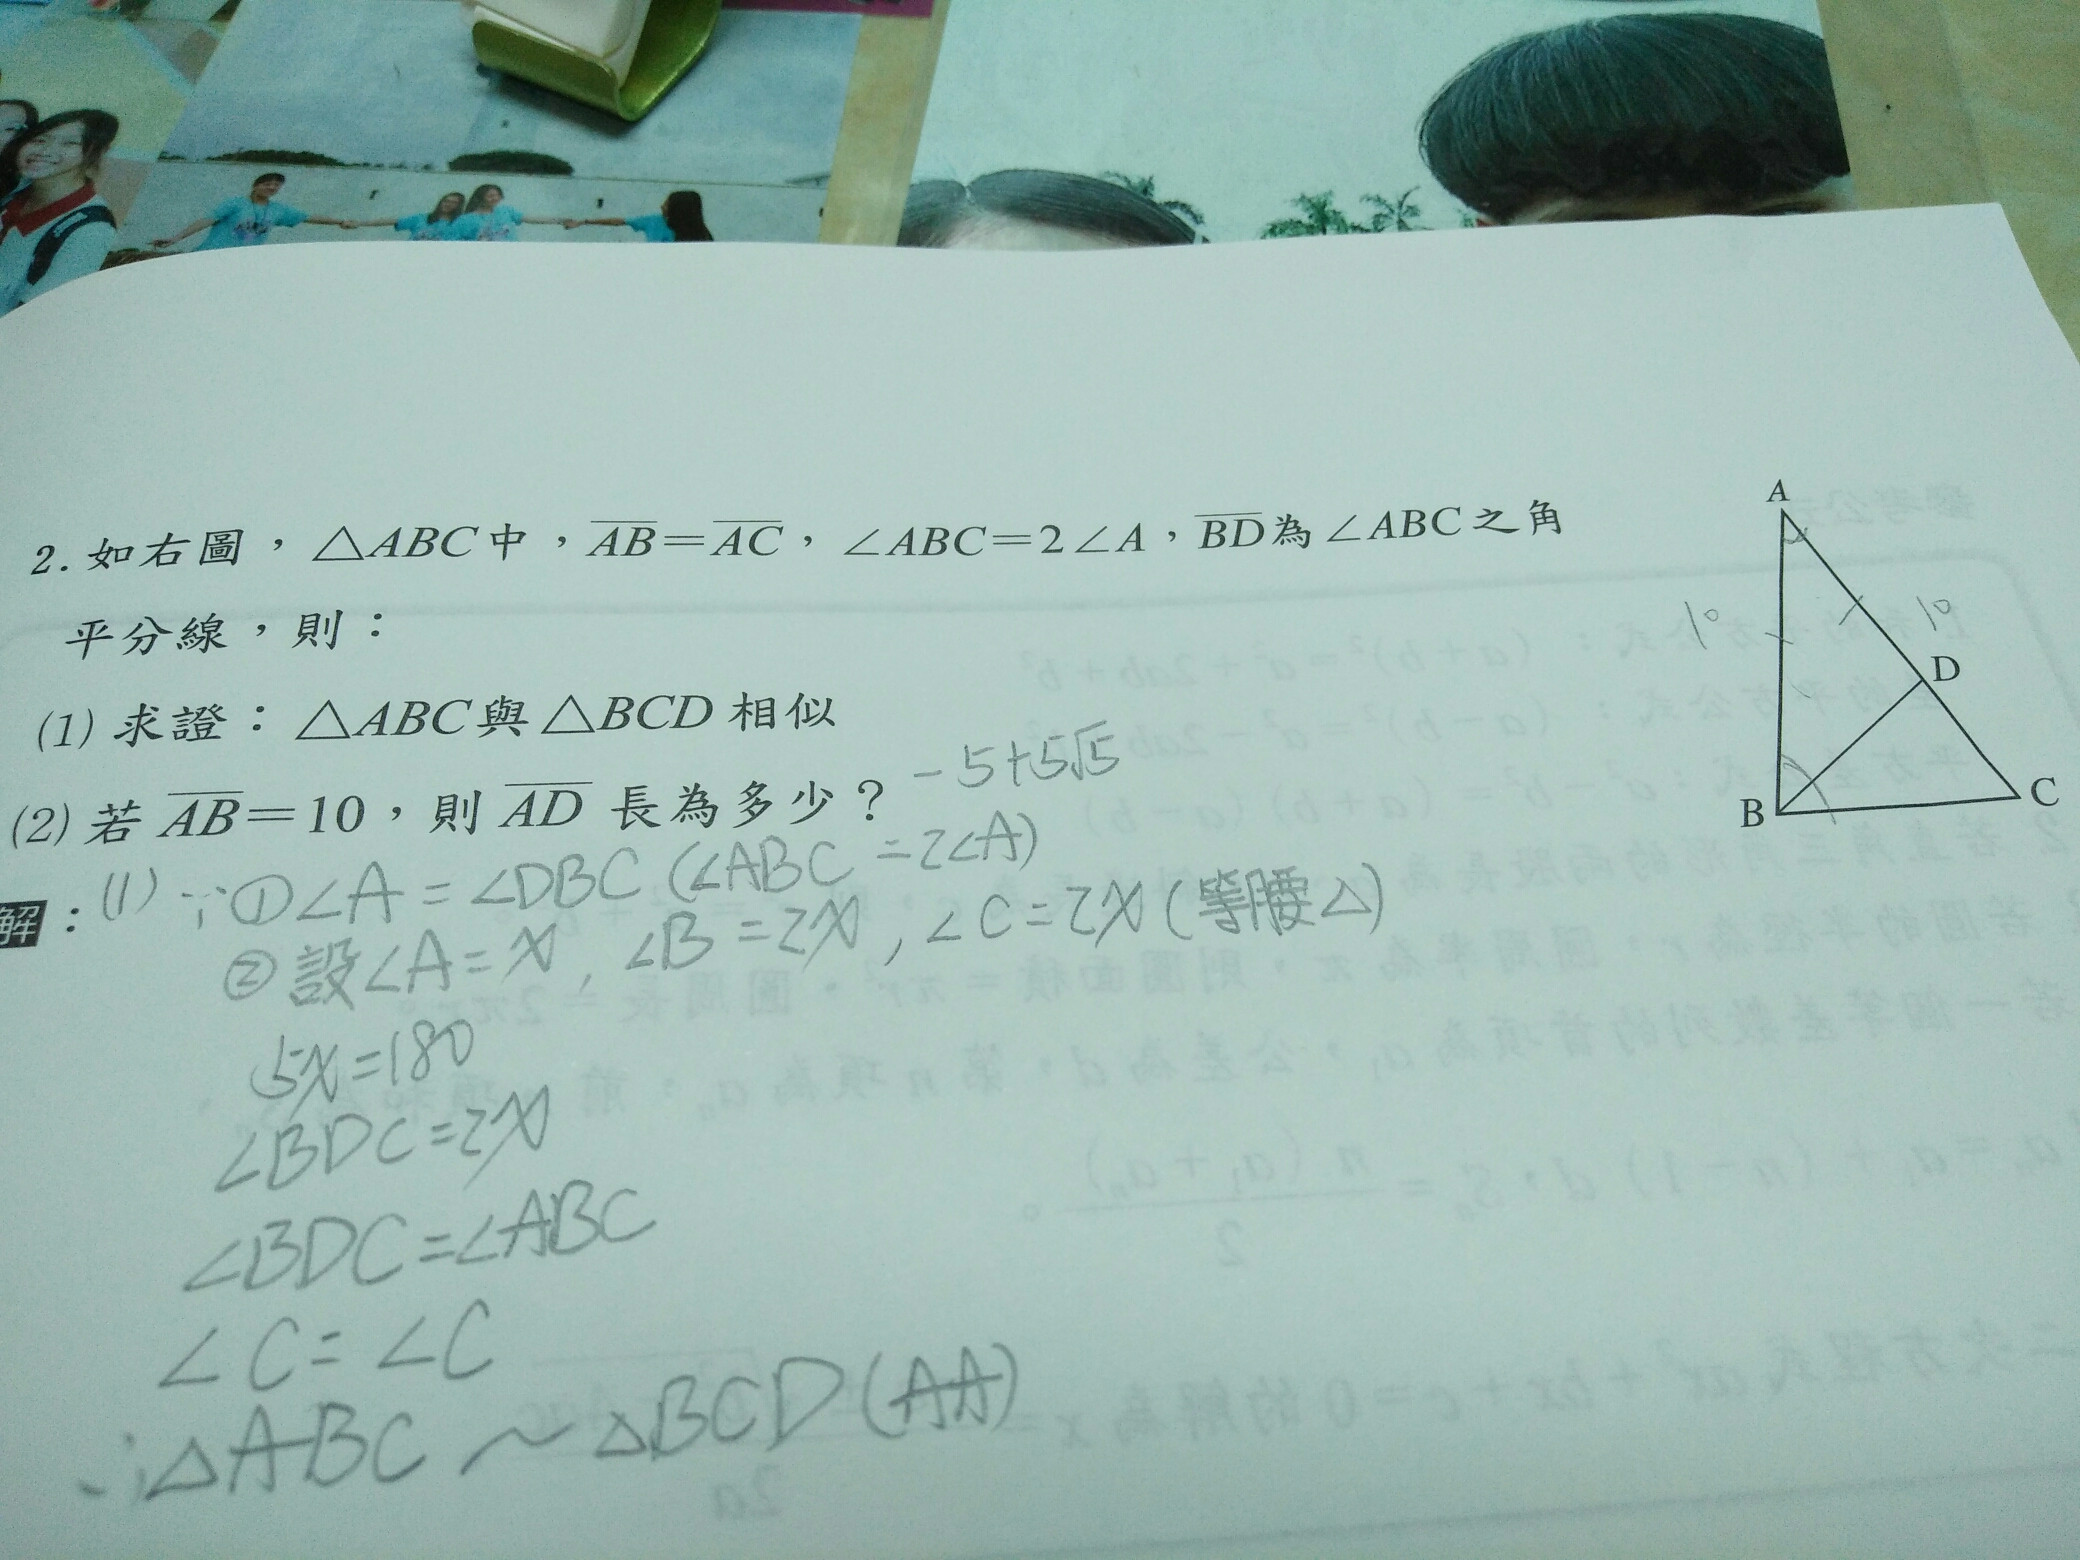 2. 如右圖，△ABC中，AB=AC，∠ABC=2∠A，BD為∠ABC之角
平分線，則：
(1) 求證：△ABC與△BCD相似
(2) 若 AB=10，則 AD 長為多少？ -5+5√5
A
10
10
D
B
C
解：(1) ∵①∠A=∠DBC (∠ABC=2∠A)
②設∠A=x, ∠B=2x, ∠C=2x (等腰△)
5x=180
∠BDC=2x
∠BDC=∠ABC
∠C=∠C
∴△ABC～△BCD(AA)